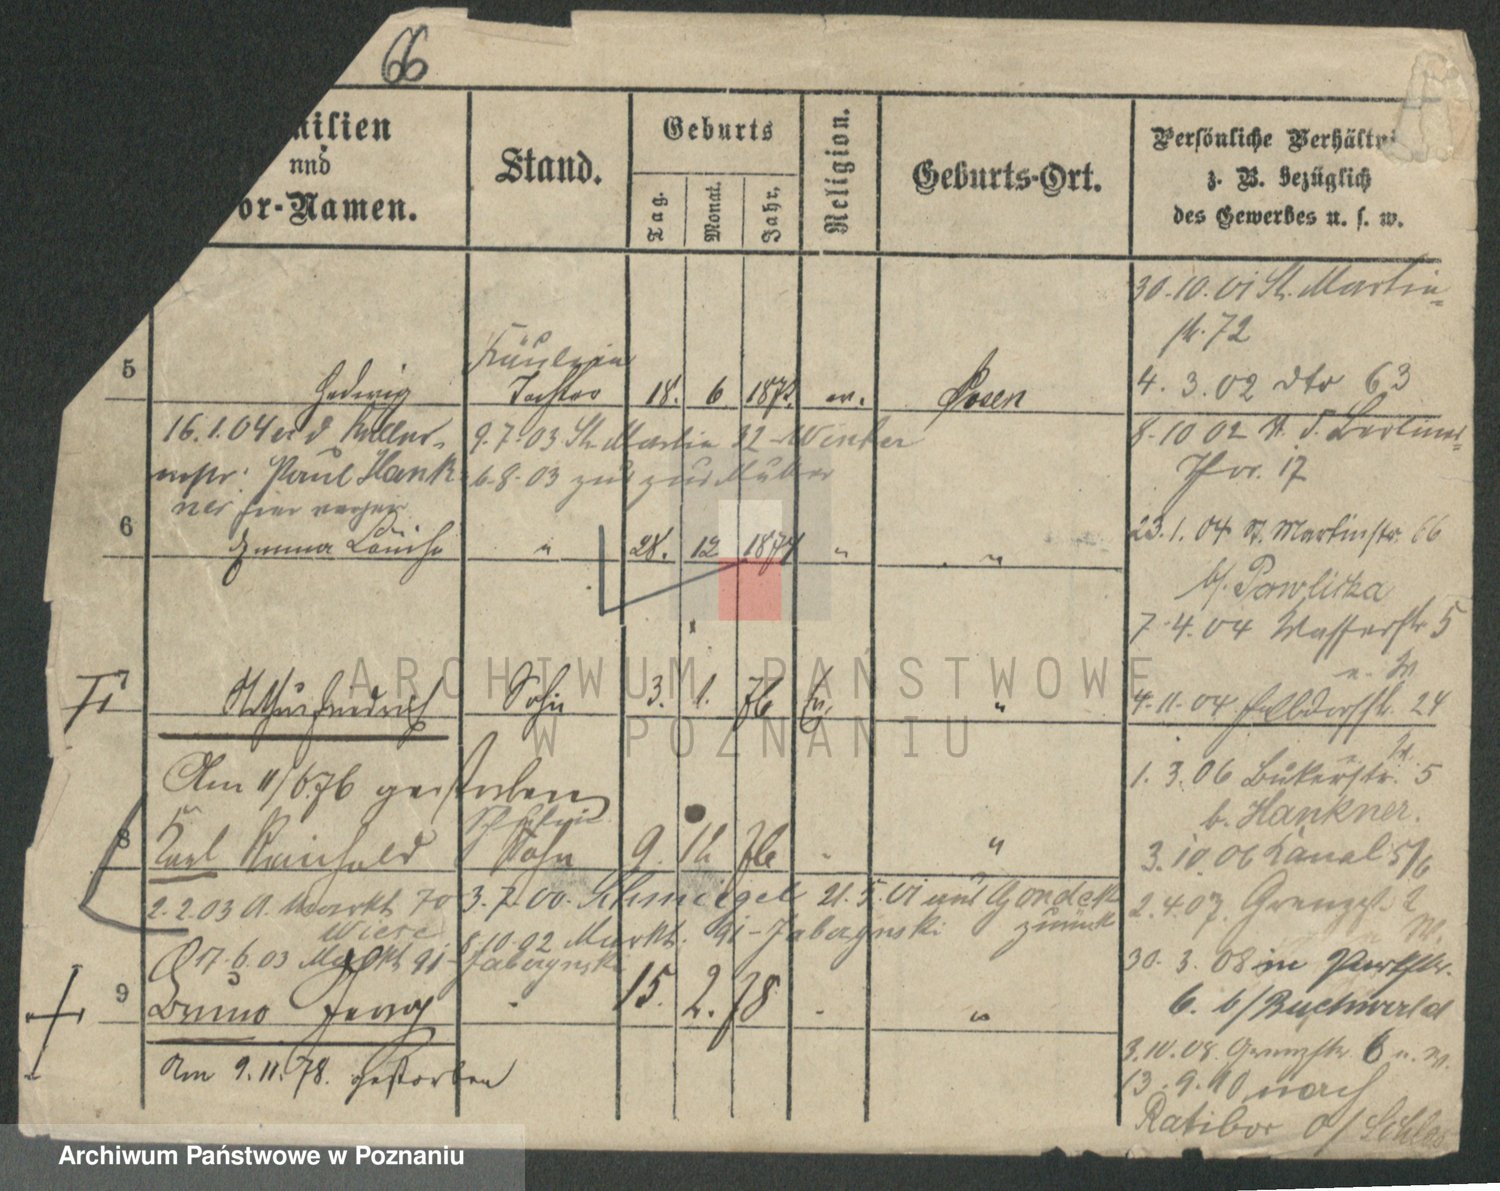 66
milien
und
or-Namen.
Stand.
Geburts
Tag.
Monat.
Jahr.
Religion.
Geburts-Ort.
Persönliche Verhältni
z. B. bezüglich
des Gewerbes u. s. w.
30.10.01 St. Martin=
72
4. 3. 02 dto 63
Fräulein
5 Hedwig Tochter 18. 6. 1872. ev. Posen
16.1.04 Kellner-
Paul Hank
ner
9.7.03 St. Martin 32 - Winter
6.8.03 zur Mutter
8.10 02 Berliner=
Thor. 17
6 Emma Louise " 28. 12 1874 " "
23.1.04 St. Martinstr. 66
b/ Pawlicka
7.4.04 Wasserstr 5
7 Arthur Friedrich Sohn 3. 1. 76 Ev. "
4.11.04 24
Am 11/6 76 gestorben
1. 3. 06 Bukerstr. 5
b. Hankner.
8 Karl Reinhold Sohn 9. 12 76 " "
3.10.06 Kanal 5/6
2.2.03 A. Markt 70 3.7.00. Schmiegel 21.5.01 aus Gondek
zurück
Wiese
17.6.03 Markt 91- 8.10.02 Markt. 91 -
2.4.07. Grenzst. 2
30. 3. 08 in
6. b/ Buchwald
9 Bruno Georg " 15. 2. 78 " "
Am 9.11.78. gestorben
3.10.08. Grenzstr 6
13.9.10 nach
Ratibor O/ Schles
ARCHIWUM PAŃSTWOWE
W POZNANIU
Archiwum Państwowe w Poznaniu